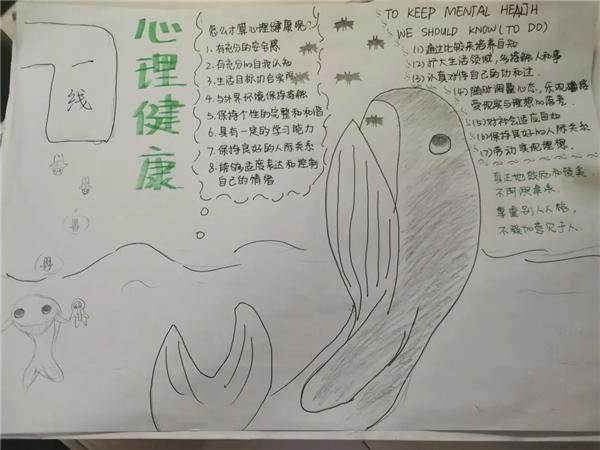 一
线
心理健康
怎么才算心理健康呢?
1.有充分的安全感
2.有充分的自我认知
3.生活目标切合实际
4.与外界环境保持接触
5.保持个性的完整和和谐
6.具有一定的学习能力
7.保持良好的人际关系
8.能够适度表达和控制
自己的情绪
TO KEEP MENTAL HEALTH.
WE SHOULD KNOW(TO DO)
(1)通过比较来培养自知
(2)扩大生活领域,多接触人和事
(3)认真对待自己的功和过
(4)随时调整心态,乐观
受现实与理想的落差.
(5)对社会适应自知
(6)保持良好的人际关系
(7)劳动实现理想.
真正地鼓励和赞美
不阿谀奉承
尊重别人人格,
不强加意见于人.